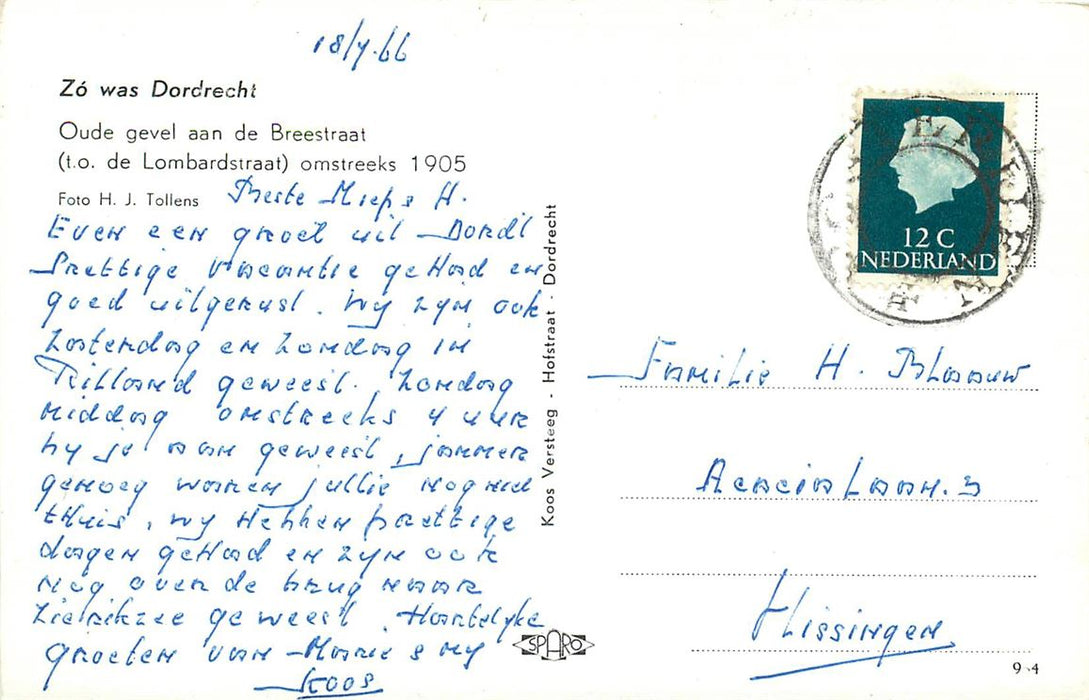 18/7.66
Zó was Dordrecht
Oude gevel aan de Breestraat
(t.o. de Lombardstraat) omstreeks 1905
Foto H. J. Tollens
Beste Mieps H.
Even een groet uit Dordt
Prettige vacantie gehad en
goed uitgerust. Wy zyn ook
Zaterdag en Zondag in
Rilland geweest. Zondag
middag omstreeks 4 uur
by je aan geweest, jammer
genoeg waren jullie nog niet
thuis, wy hebben prettige
dagen gehad en zyn ook
nog over de brug naar
Zierikzee geweest. Hartelyke
groeten van Marie & my
Koos
Koos Versteeg - Hofstraat - Dordrecht
SPARO
12 C
NEDERLAND
Familie H. Blaauw
Acacia Laan. 3
Vlissingen
9-4